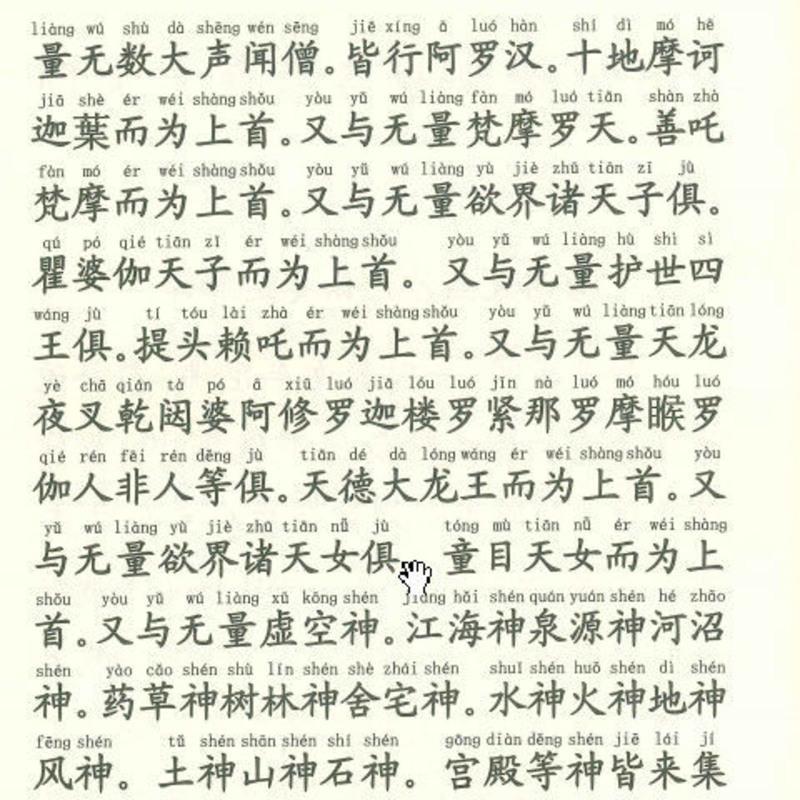 liàng wú shù dà shēng wén sēng jiē xíng ā luó hàn shí dì mó hē
量无数大声闻僧。皆行阿罗汉。十地摩诃
jiā shè ér wéi shàng shǒu yòu yǔ wú liàng fàn mó luó tiān shàn zhà
迦葉而为上首。又与无量梵摩罗天。善吒
fàn mó ér wéi shàng shǒu yòu yǔ wú liàng yù jiè zhū tiān zǐ jù
梵摩而为上首。又与无量欲界诸天子俱。
qú pó qié tiān zǐ ér wéi shàng shǒu yòu yǔ wú liàng hù shì sì
瞿婆伽天子而为上首。又与无量护世四
wáng jù tí tóu lài zhà ér wéi shàng shǒu yòu yǔ wú liàng tiān lóng
王俱。提头赖吒而为上首。又与无量天龙
yè chā qián tà pó ā xiū luó jiā lóu luó jǐn nà luó mó hóu luó
夜叉乾闼婆阿修罗迦楼罗紧那罗摩睺罗
qié rén fēi rén děng jù tiān dé dà lóng wáng ér wéi shàng shǒu yòu
伽人非人等俱。天德大龙王而为上首。又
yǔ wú liàng yù jiè zhū tiān nǚ jù tóng mù tiān nǚ ér wéi shàng
与无量欲界诸天女俱 童目天女而为上
shǒu yòu yǔ wú liàng xū kōng shén jiāng hǎi shén quán yuán shén hé zhǎo
首。又与无量虚空神。江海神泉源神河沼
shén yào cǎo shén shù lín shén shè zhái shén shuǐ shén huǒ shén dì shén
神。药草神树林神舍宅神。水神火神地神
fēng shén tǔ shén shān shén shí shén gōng diàn děng shén jiē lái jí
风神。土神山神石神。宫殿等神皆来集